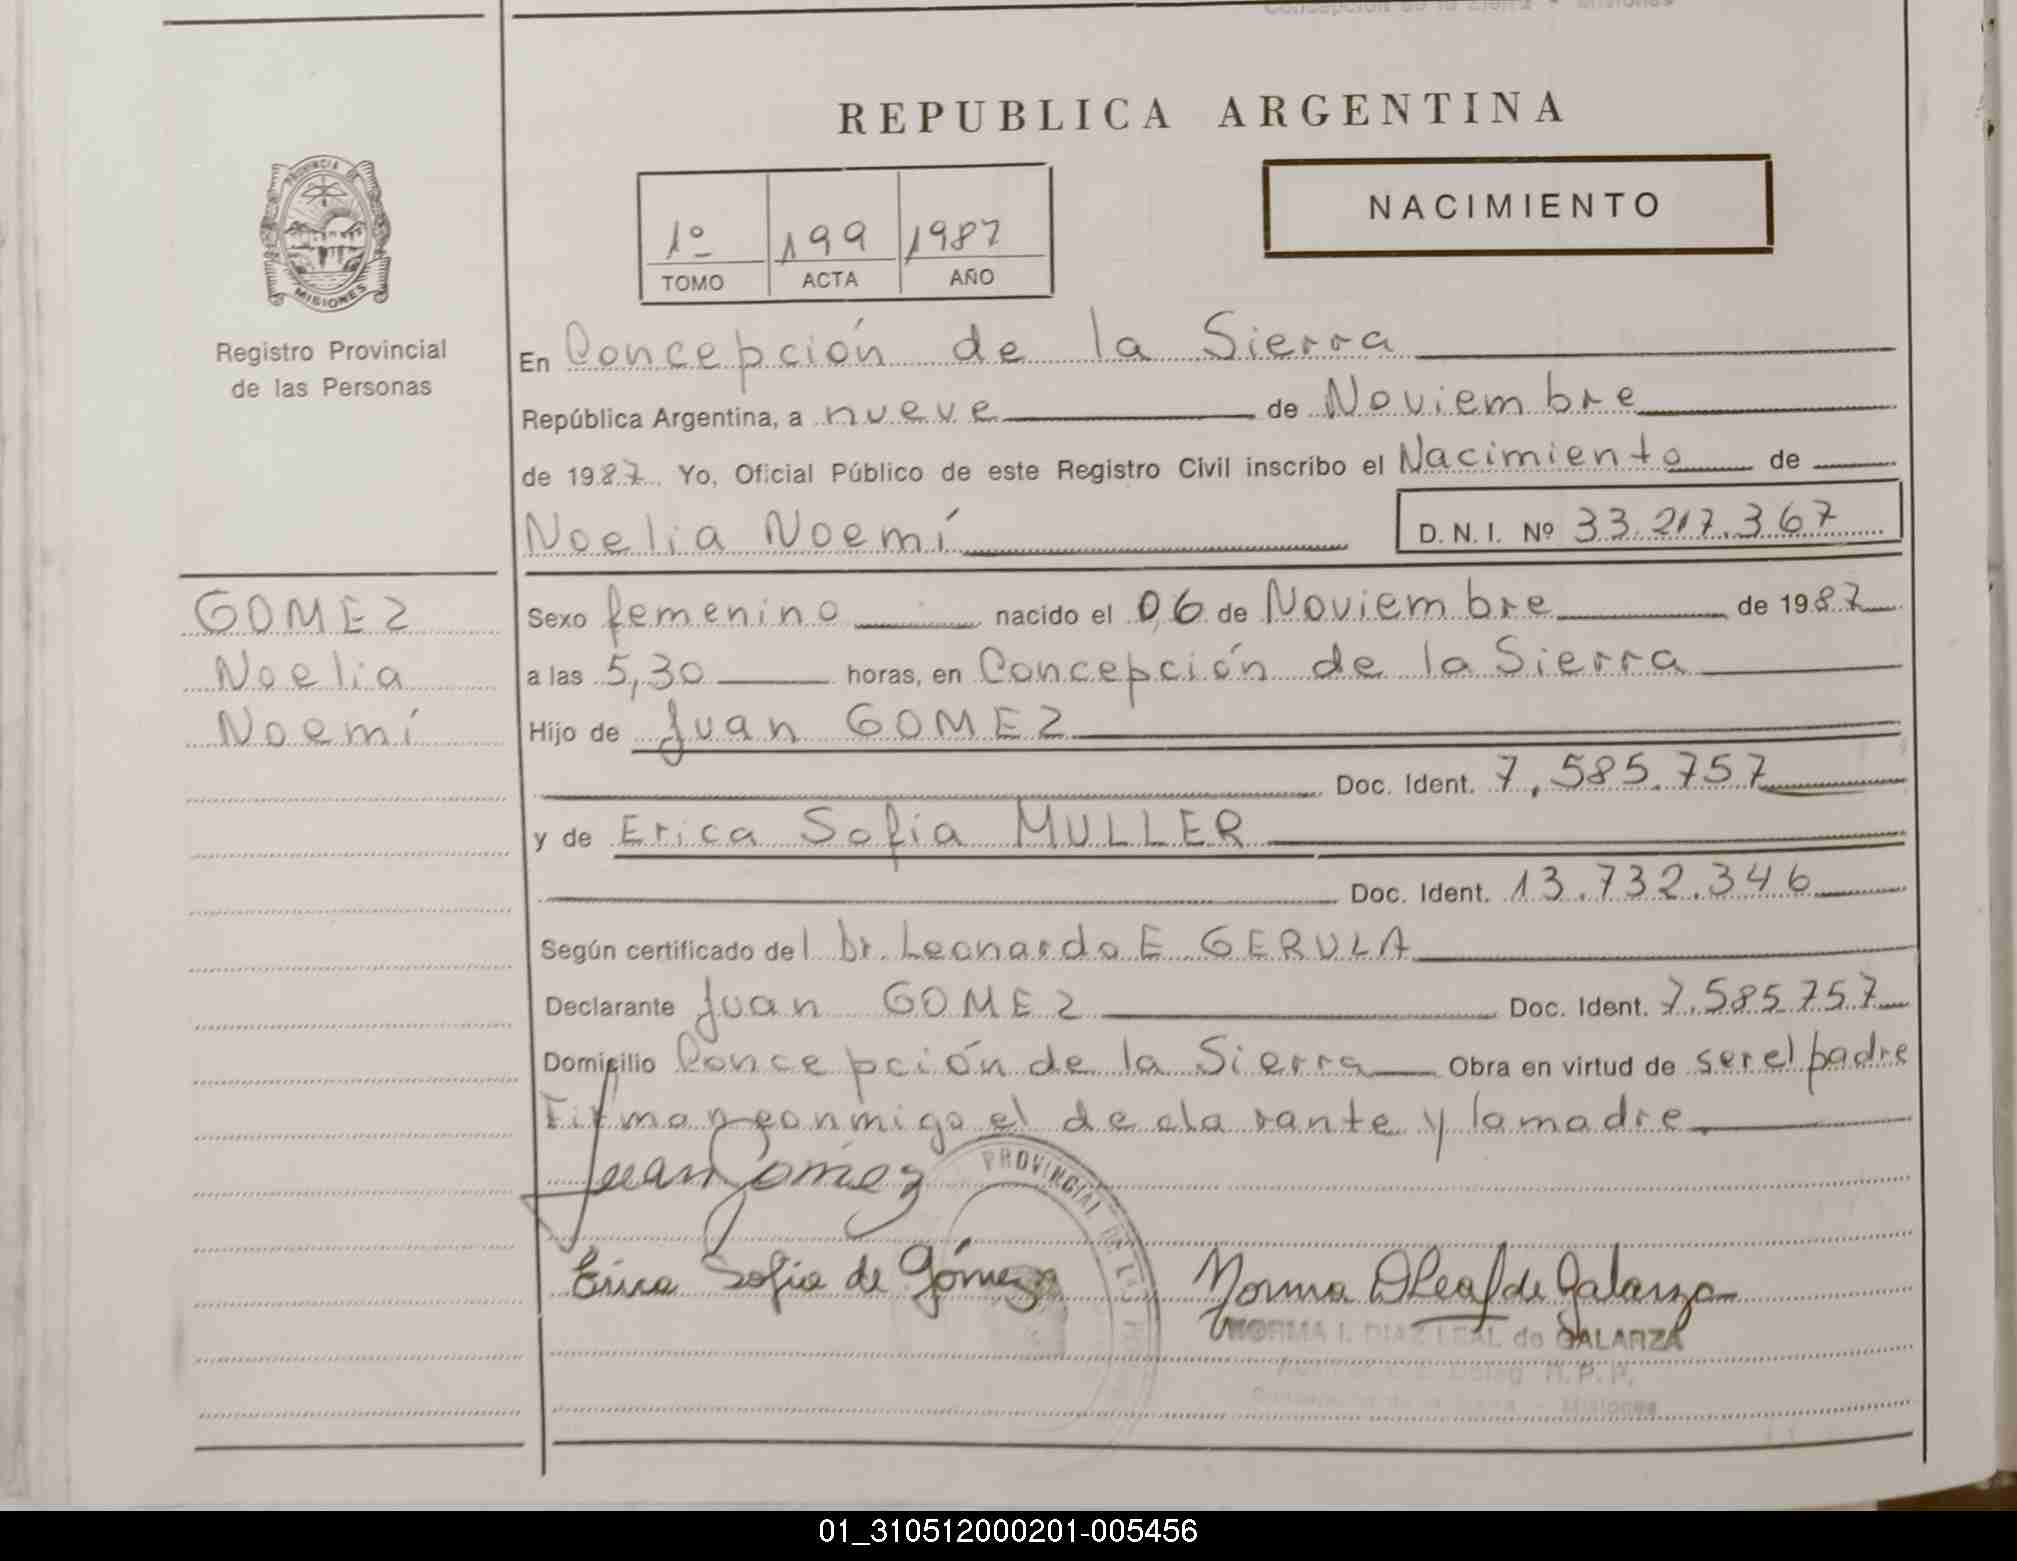 REPUBLICA ARGENTINA
NACIMIENTO
1º 199 1987
TOMO ACTA AÑO
PROVINCIA DE
MISIONES
Registro Provincial
de las Personas
En Concepción de la Sierra
República Argentina, a nueve de Noviembre
de 1987 Yo, Oficial Público de este Registro Civil inscribo el Nacimiento de
Noelia Noemí D.N.I. Nº 33.217.367
GOMEZ
Noelia
Noemí
Sexo femenino nacido el 06 de Noviembre de 1987
a las 5,30 horas, en Concepción de la Sierra
Hijo de Juan GOMEZ
Doc. Ident. 7.585.757
y de Erica Sofia MULLER
Doc. Ident. 13.732.346
Según certificado del Dr. Leonardo E GERULA
Declarante Juan GOMEZ Doc. Ident. 7.585.757
Domicilio Concepción de la Sierra Obra en virtud de ser el padre
Firman conmigo el declarante y la madre.
Juan Gómez
PROVINCIAL DE LAS
Erica Sofia de Gómez Norma DLeal de Galarza
NORMA I. DIAZ LEAL de GALARZA
R.P.P.
Misiones
01_310512000201-005456